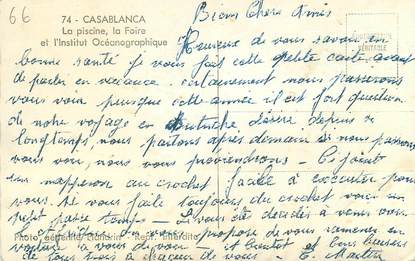 66
74 - CASABLANCA
La piscine, la Foire
et l'Institut Océanographique
Biens Chers Amis
Heureux de vous savoir en
bonne santé je vous fait cette petite carte avant
de partir en vacance. certainement nous passerons
vous voir puisque cette année il est fort question
de notre voyage en Autriche désiré depuis
longtemps, nous partons après demain si nous passons
vous voir, nous vous previendrons - Ci joint
un napperon au crochet facile à executer pour
vous. Si vous faite toujours du crochet vous un
petit passe temps - Si vous été décidés à venir
vous propose de vous ramener en
voiture à vous de voir - et bientot et bons baisers
de tous trois à chacun de vous. E. Martin
VÉRITABLE
Photo Interdite